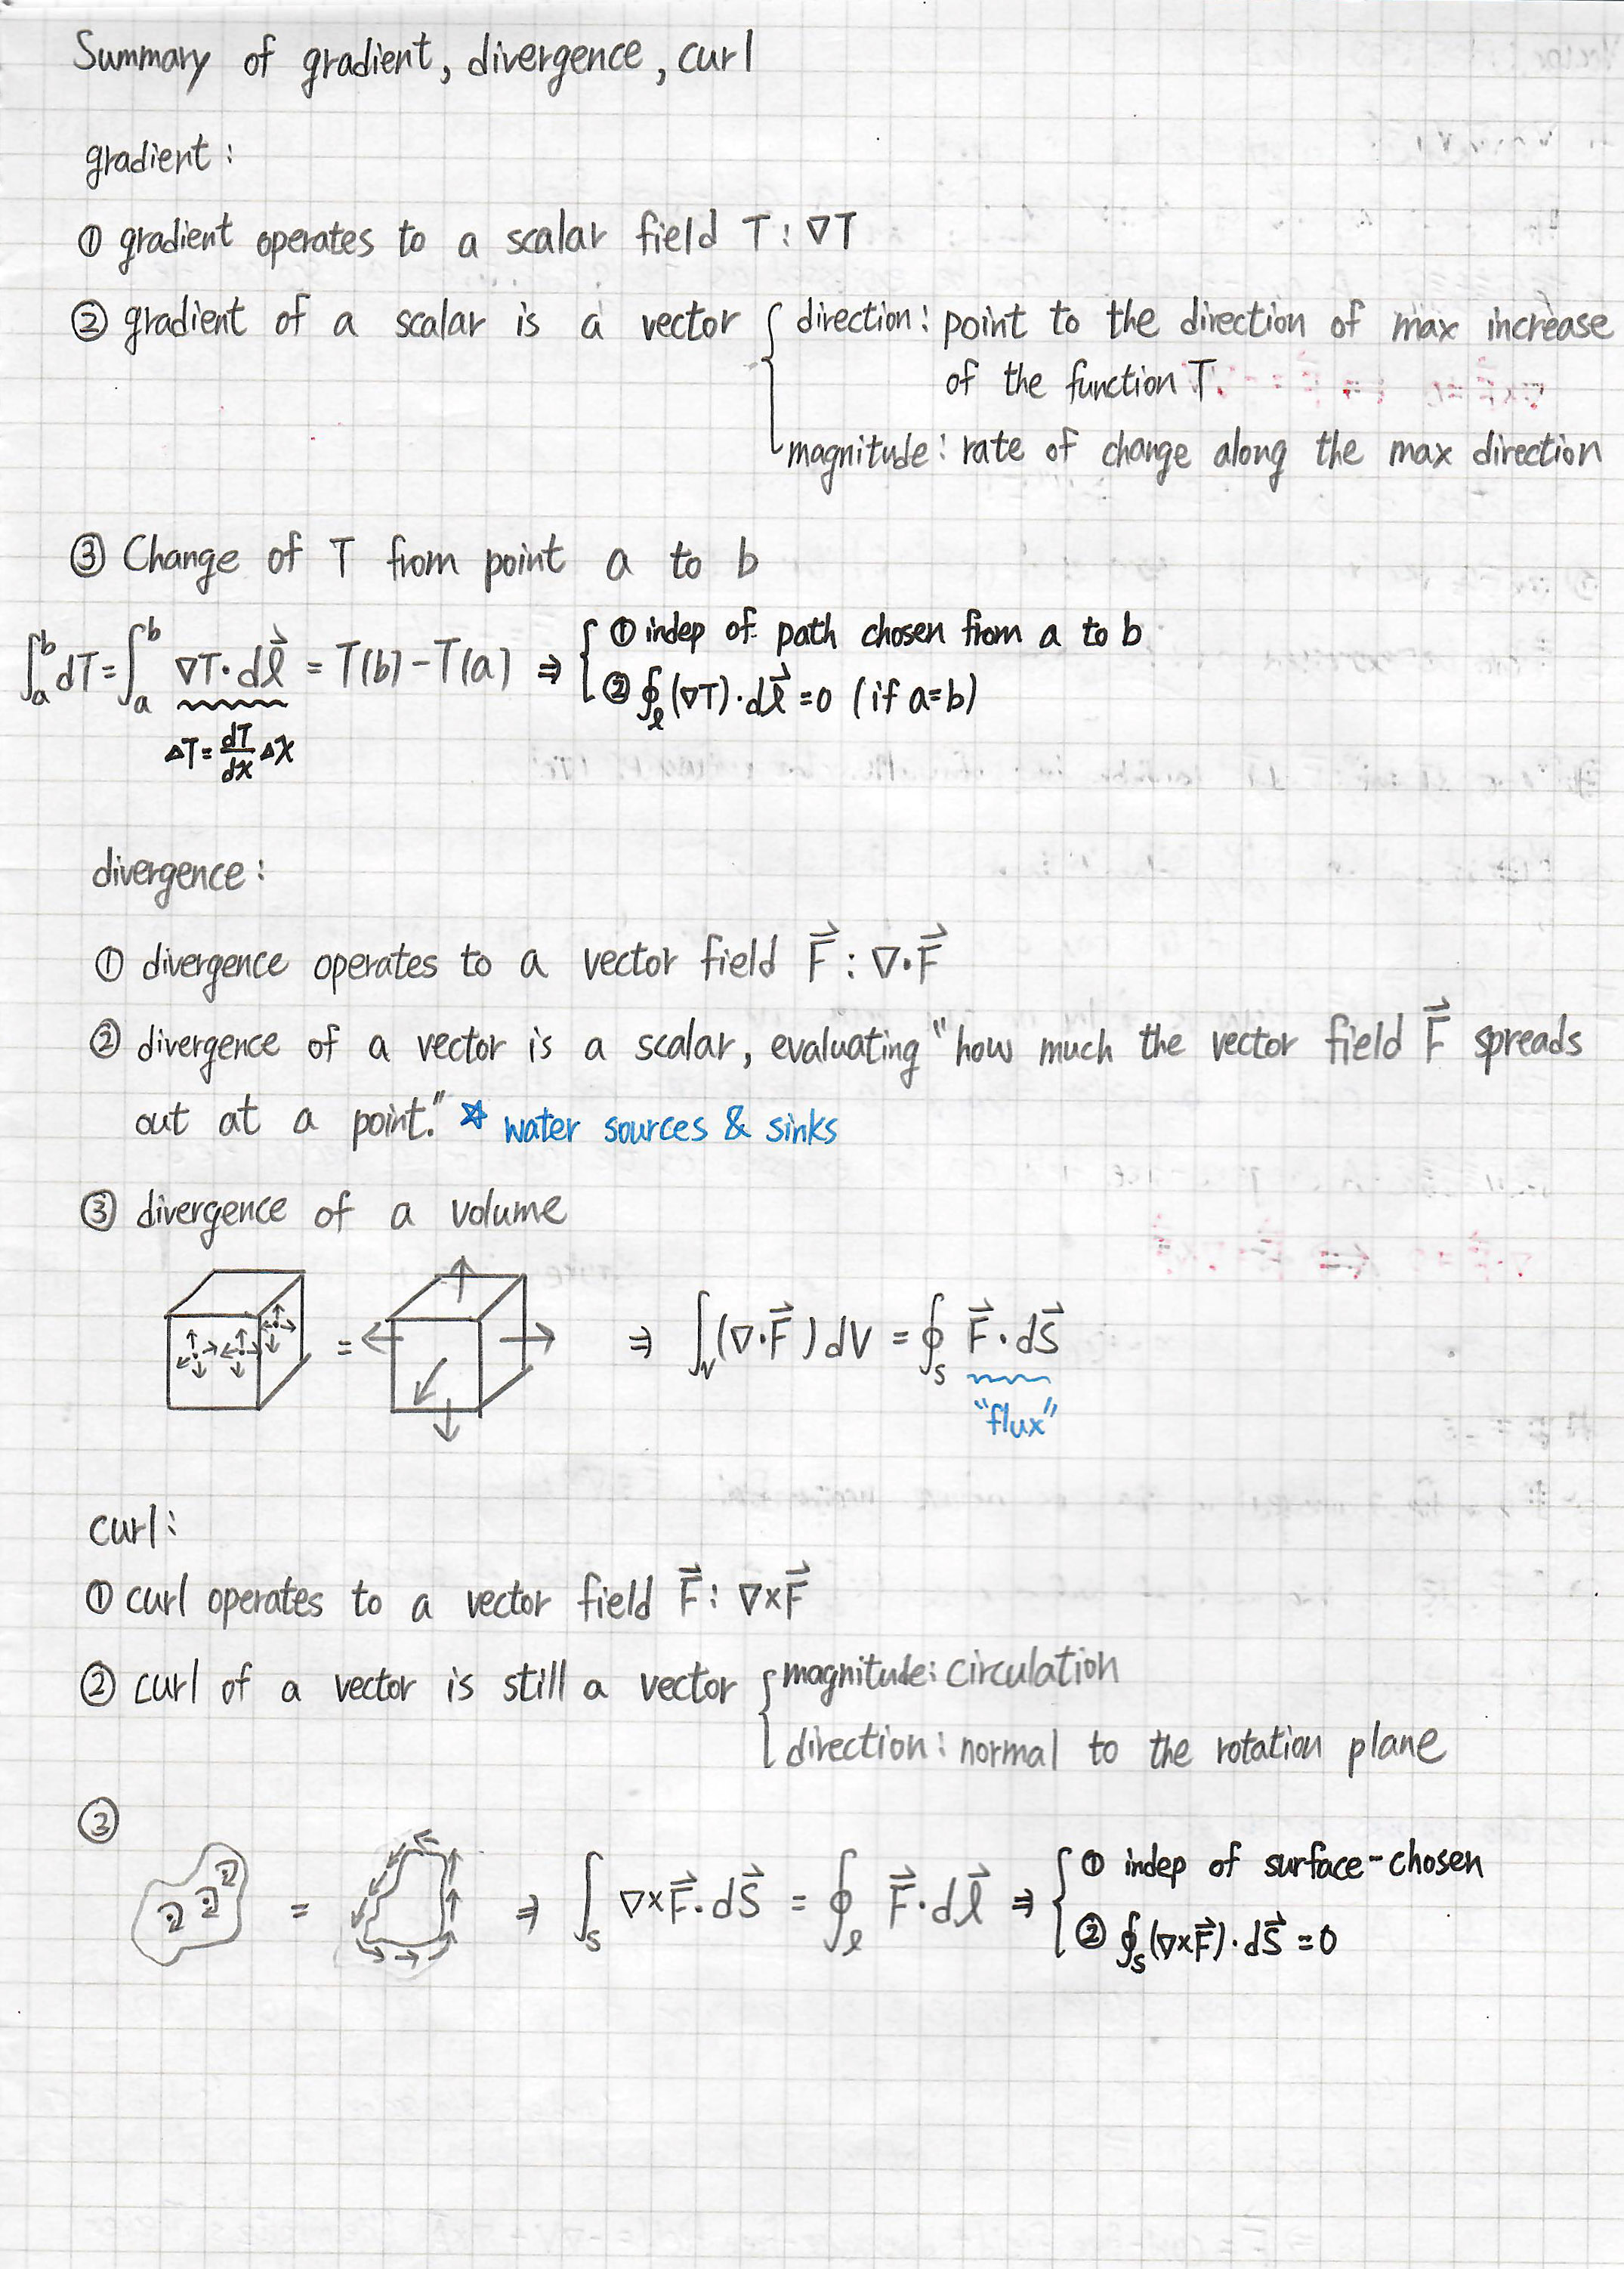 Summary of gradient, divergence, curl
gradient:
① gradient operates to a scalar field T: ∇T
② gradient of a scalar is a vector { direction: point to the direction of max increase
of the function T.
magnitude: rate of change along the max direction
③ Change of T from point a to b
∫_a^b dT = ∫_a^b ∇T·dl⃗ = T(b)-T(a) ⇒ { ① indep of path chosen from a to b
② ∮_ℓ (∇T)·dl⃗ = 0 (if a=b)
ΔT = dT/dx Δx
divergence:
① divergence operates to a vector field F⃗: ∇·F⃗
② divergence of a vector is a scalar, evaluating "how much the vector field F⃗ spreads
out at a point." ☆ water sources & sinks
③ divergence of a volume
= ⇒ ∫_V (∇·F⃗) dV = ∮_S F⃗·dS⃗
"flux"
curl:
① curl operates to a vector field F⃗: ∇×F⃗
② curl of a vector is still a vector { magnitude: circulation
direction: normal to the rotation plane
③
= ⇒ ∫_S ∇×F⃗·dS⃗ = ∮_ℓ F⃗·dl⃗ ⇒ { ① indep of surface-chosen
② ∮_S (∇×F⃗)·dS⃗ = 0